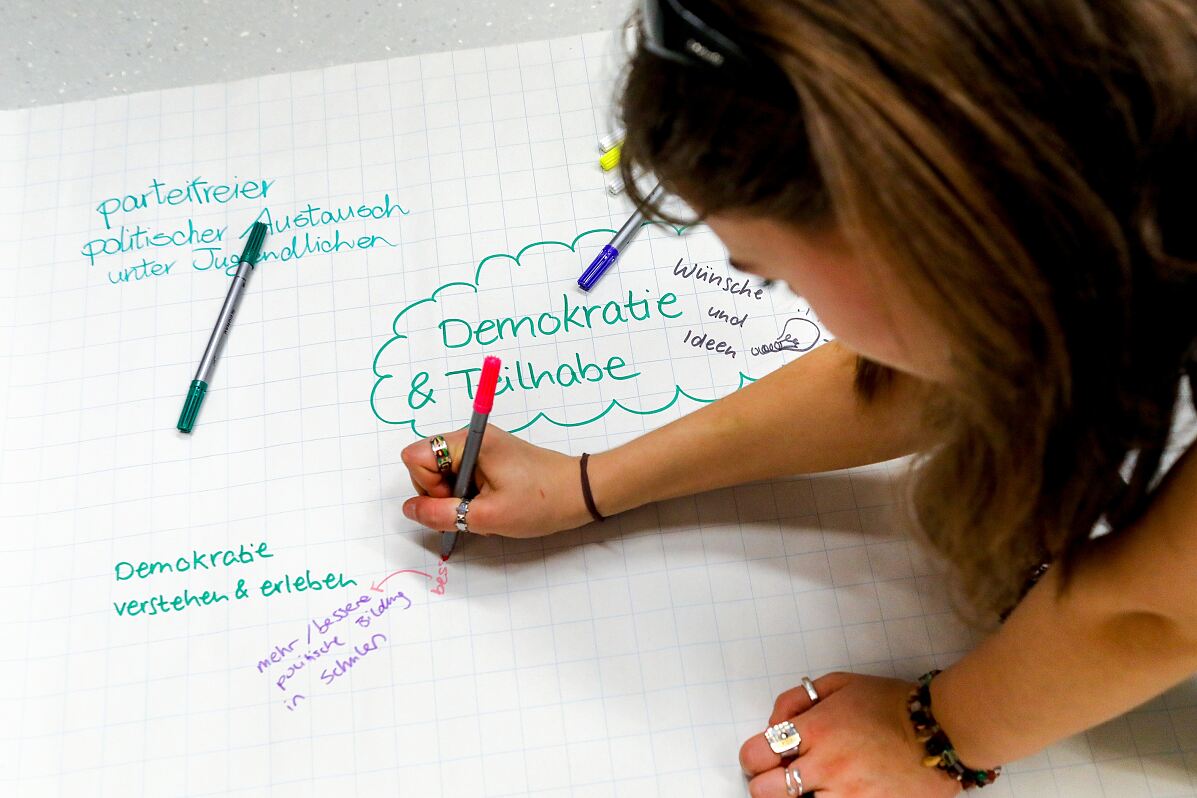 parteifreier
politischer Austausch
unter Jugendlichen
Demokratie
& Teilhabe
Wünsche
und
Ideen
Demokratie
verstehen & erleben
bess
mehr / bessere
politische Bildung
in Schulen